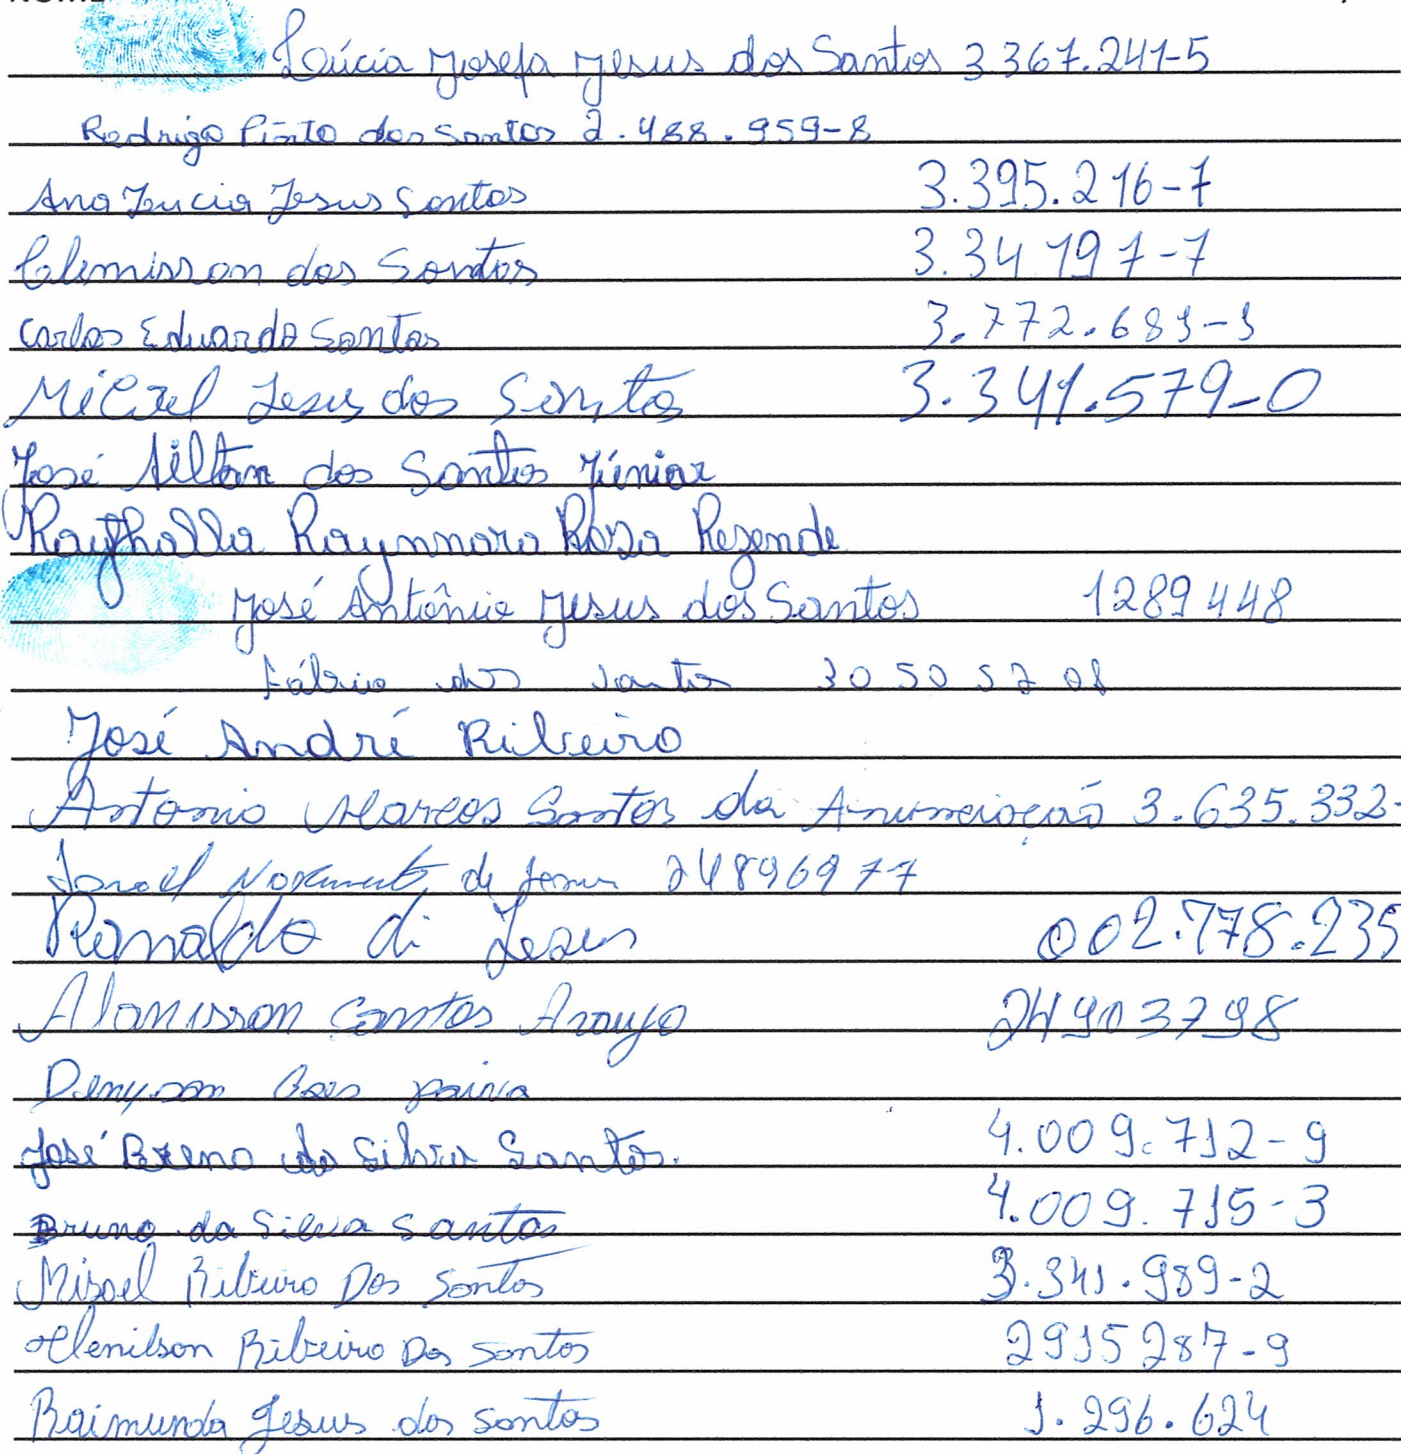 Lúcia Josefa Jesus dos Santos 3367.241-5
Rodrigo Pinto dos Santos 2.488.959-8
Ana Lucia Jesus Santos 3.395.216-7
Clemisson dos Santos 3.34 197-7
Carlos Eduardo Santos 3.772.681-1
Micael Jesus dos Santos 3.341.579-0
José Ailton dos Santos Júnior
Raythalla Raynnara Rosa Rezende
José Antônio Jesus dos Santos 1289448
Fábio dos Santos 30505208
José André Ribeiro
Antonio Marcos Santos da Anunciação 3.635.332-
de Jesus 24896977
Ronaldo di Jesus 002.778.235
Alanisson Santos Araujo 24903798
Denyson paiva
José Breno da Silva Santos. 4.009.712-9
Bruno da Silva Santos 4.009.715-3
Misael Ribeiro Dos Santos 3.341.989-2
Clenilson Ribeiro Dos Santos 2915287-9
Raimunda Jesus dos Santos 1.296.624